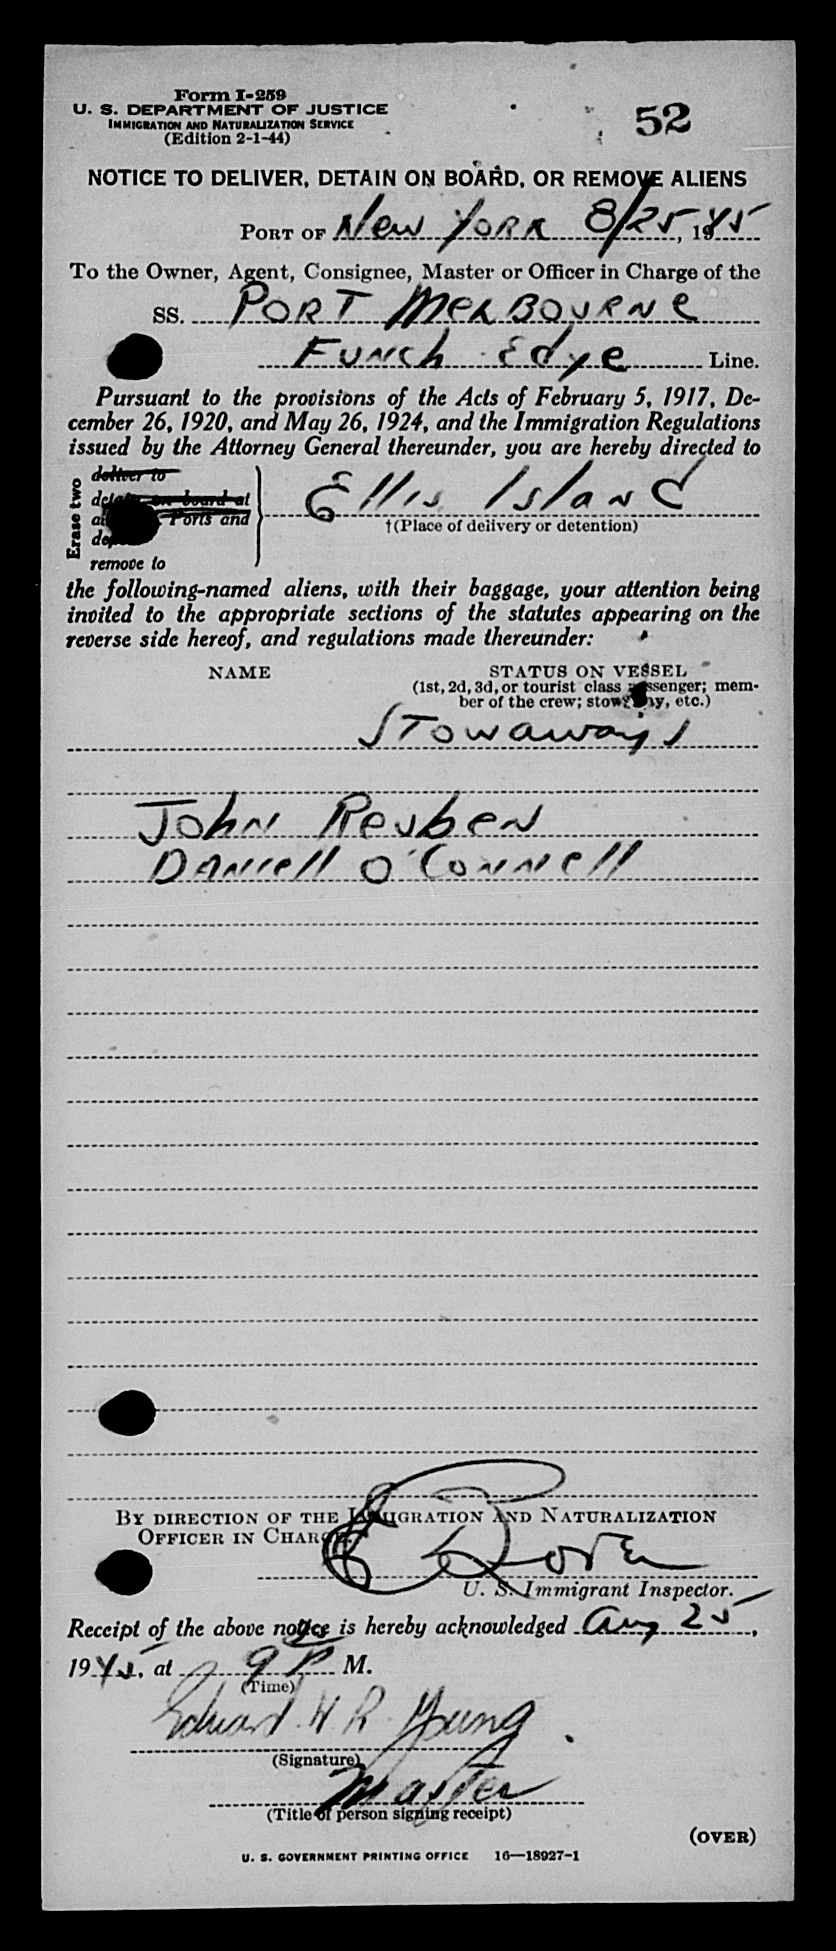 Form I-259
U. S. DEPARTMENT OF JUSTICE
IMMIGRATION AND NATURALIZATION SERVICE
(Edition 2-1-44)
52
NOTICE TO DELIVER, DETAIN ON BOARD, OR REMOVE ALIENS
PORT OF New York 8/25, 1945
To the Owner, Agent, Consignee, Master or Officer in Charge of the
SS. PORT MELBOURNE
Funch Edye Line.
Pursuant to the provisions of the Acts of February 5, 1917, De-
cember 26, 1920, and May 26, 1924, and the Immigration Regulations
issued by the Attorney General thereunder, you are hereby directed to
Erase two
deliver to
on board at
Ports and
remove to
Ellis Island
†(Place of delivery or detention)
the following-named aliens, with their baggage, your attention being
invited to the appropriate sections of the statutes appearing on the
reverse side hereof, and regulations made thereunder:
NAME STATUS ON VESSEL
(1st, 2d, 3d, or tourist class passenger; mem-
ber of the crew; stowaway, etc.)
Stowaways
John Reuben
Daniell O'Connell
BY DIRECTION OF THE IMMIGRATION AND NATURALIZATION
OFFICER IN CHARGE
U. S. Immigrant Inspector.
Receipt of the above notice is hereby acknowledged Aug 25,
1945, at 9 P M.
(Time)
Edward W R Young
(Signature)
Master
(Title of person signing receipt)
(OVER)
U. S. GOVERNMENT PRINTING OFFICE 16—18927-1